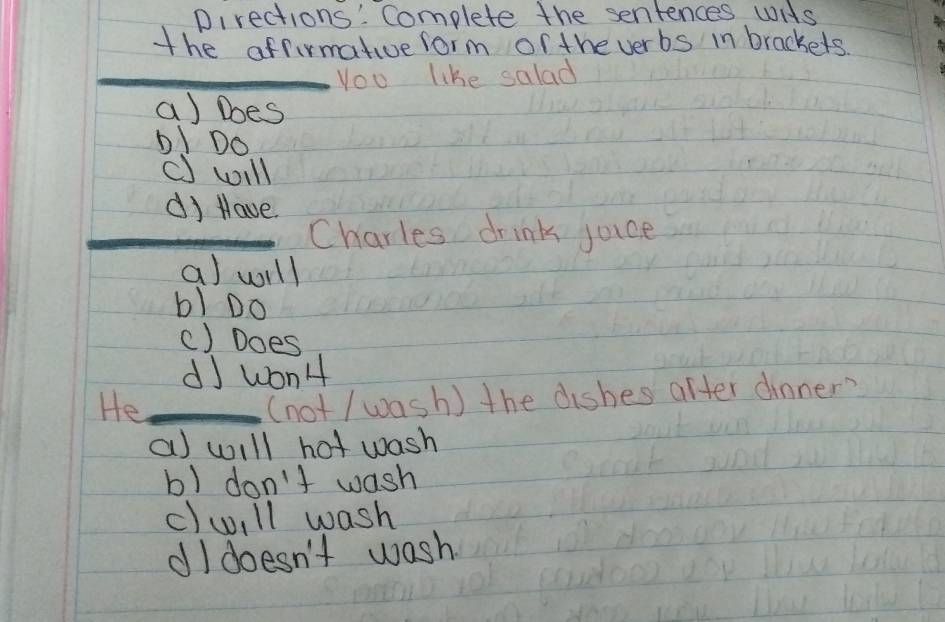 Directions: Complete the sentences wits
the affirmative form of the verbs in brackets.
________ you like salad
a) Does
b) Do
c) will
d) Have
________ Charles drink joice
a) will
b) Do
c) Does
d) won't
He ________ (not / wash) the dishes after dinner?
a) will not wash
b) don't wash
c) will wash
d) doesn't wash.